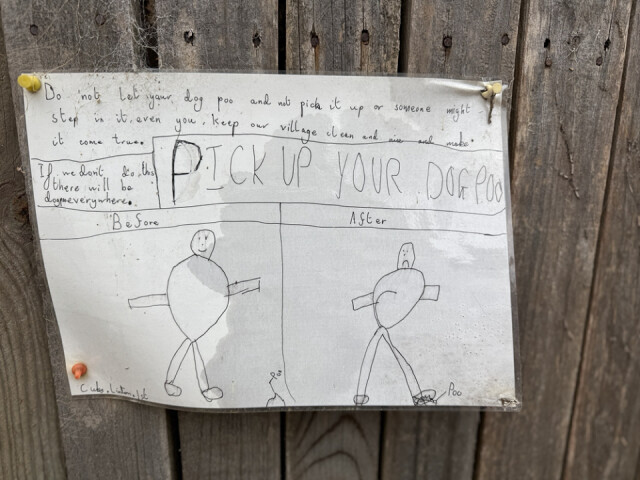 Do not let your dog poo and not pick it up or someone might
step is it, even you. Keep our village clean and nice and make
it come true.
PICK UP YOUR DOG POO
If we dont do this
there will be
everywhere.
Before
After
Cubs
1st
Poo